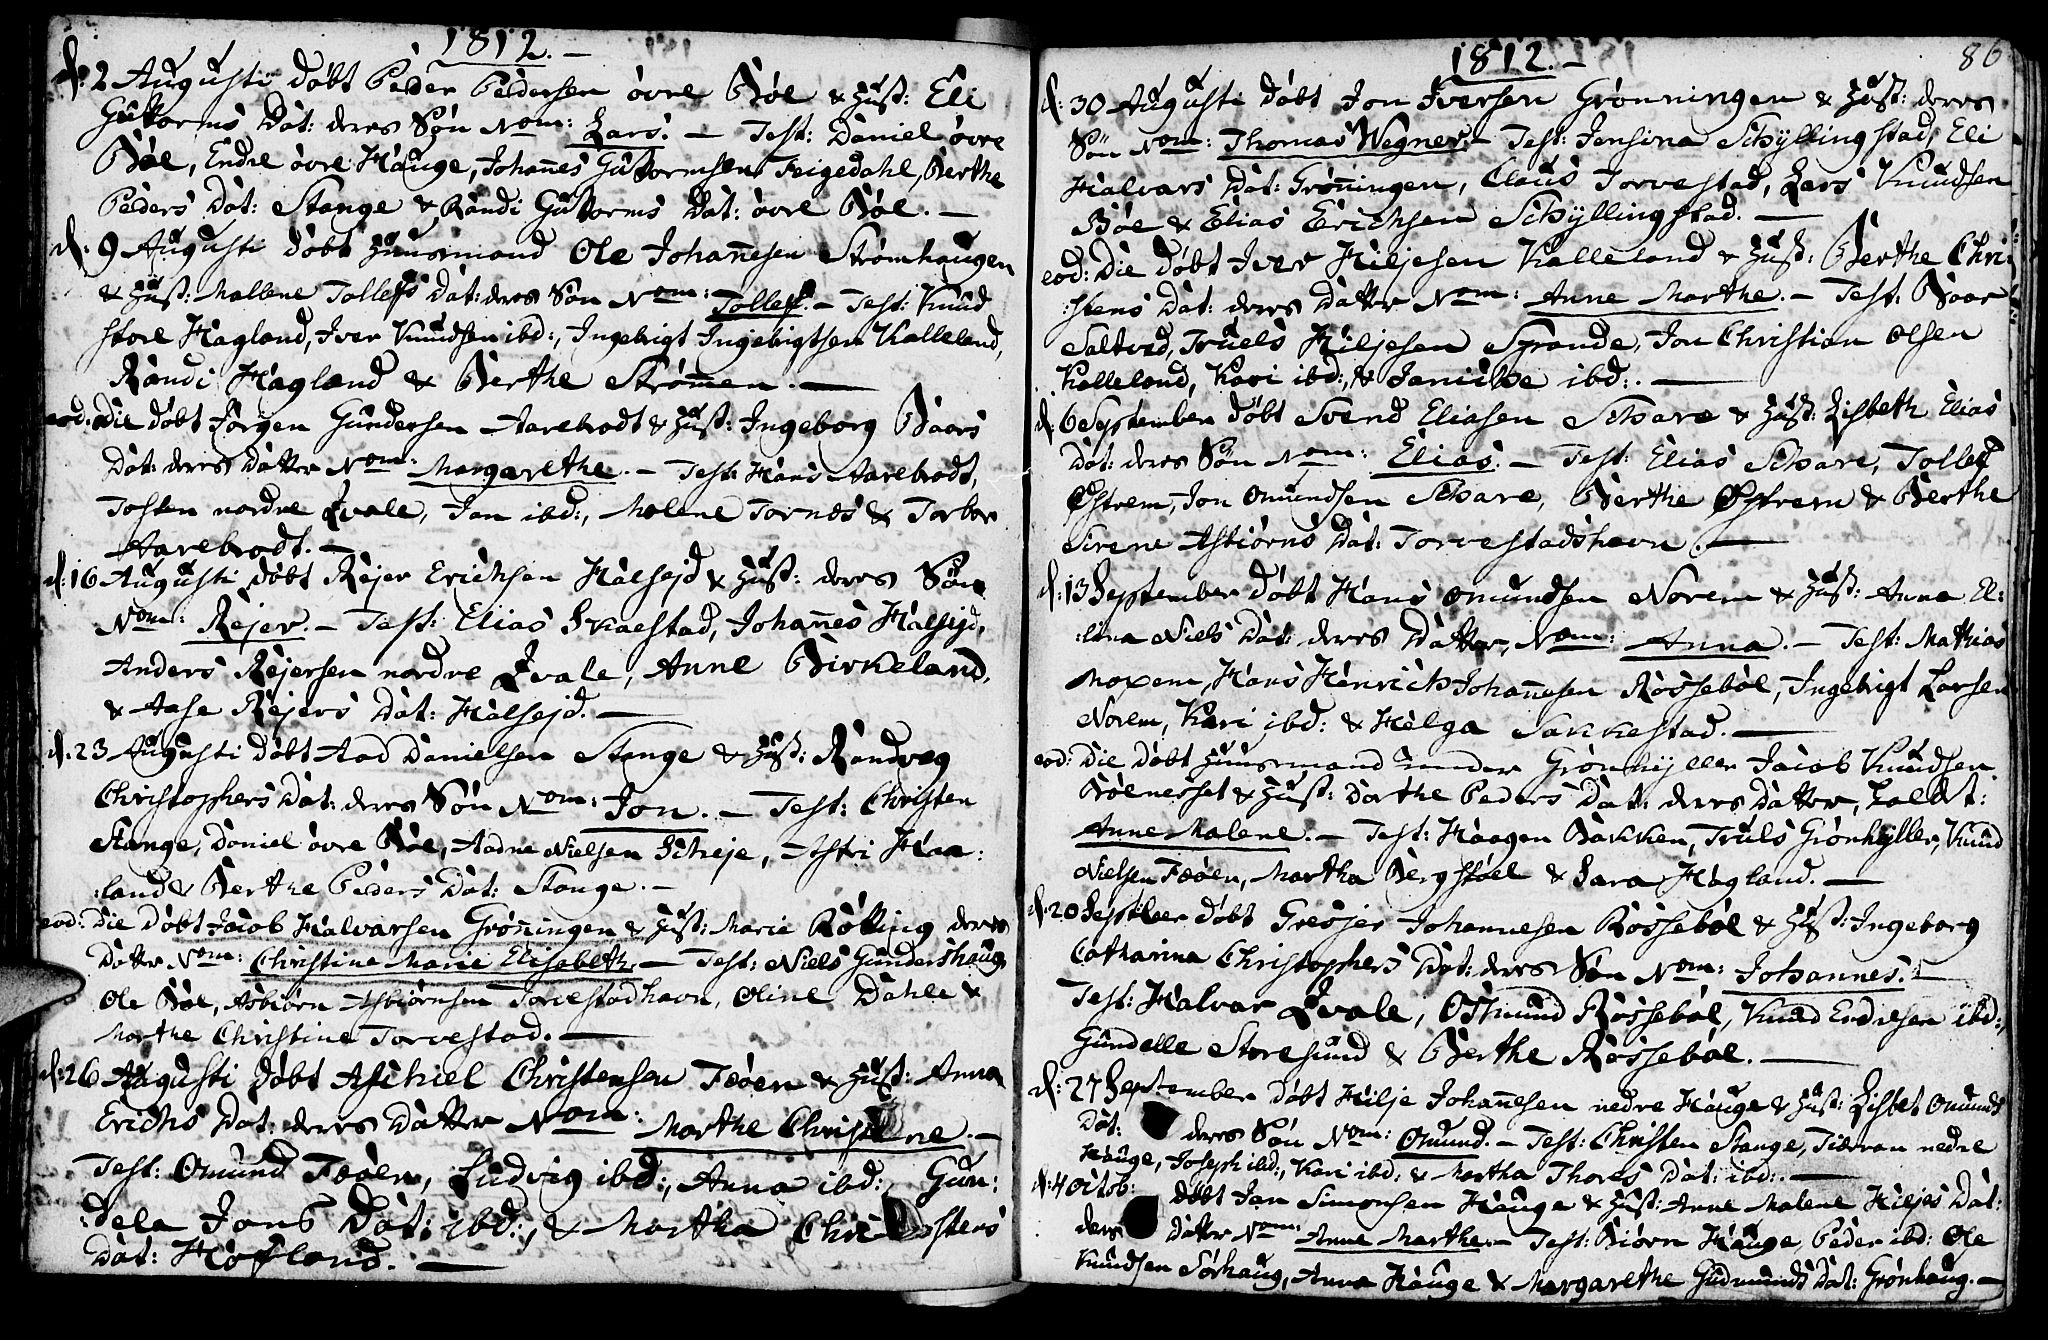 1812.
d: 2 Augusti døbt Peder Pedersen øvre Bøe & Hust: Eli
Guttorms Dat: deres Søn Nom: Lars. - Test: Daniel øvre
Bøe, Endre øvre Hauge, Johan̄es Guttormsen Feigedahl, Berthe
Peders Dat: Stange & Randi Guttorms Dat: øvre Bøe. -
d: 9 Augusti døbt Huusmand Ole Johan̄esen Strømhaugen
& Hust: Mallene Tollefs Dat: deres Søn Nom: Tollef. - Test: Knud
store Hagland, Iver Knudsen ibd:, Ingebrigt Ingebrigtsen Kalleland,
Randi Hagland & Berthe Strøm̄en. -
eod: Die døbt Jørgen Gundersen Aarebrodt & Hust: Ingeborg Baars
Dat: deres Datter Nom: Margarethe. - Test: Hans Aarebrodt,
Tosten nordre Qvale, Jan ibd:, Malene Tornes & Torbor
Aarebrodt. -
d: 16 Augusti døbt Rejer Erichsen Halsejd & Hust: deres Søn
Nom: Rejer. - Test: Elias Skaestad, Johan̄es Halsejd,
Anders Rejersen nordre Qvale, Anne Birkeland,
& Aase Rejers Dat: Halsejd. -
d: 23 Augusti døbt Aad Danielsen Stange & Hust: Randveg
Christophers Dat: deres Søn Nom: Jon. - Test: Christen
Stange, Daniel øvre Bøe, Aadne Nielsen Scheje, Astri Haa:
:land & Berthe Peders Dat: Stange. -
eod: Die døbt Jacob Halvarsen Grøn̄ingen & Hust: Marie Rølling deres
Datter Nom: Christine Marie Elisabeth. - Test: Niels Gundershaug,
Ole Bøe, Asbiørn Asbiørnsen Torvestadhavn, Oline Dahle &
Marthe Christine Torvestad. -
d: 26 Augusti døbt Aschiel Christensen Feøen & Hust: Anna
Erichs Dat: deres Datter Nom: Marthe Christine. -
Test: Omund Feøen, Ludvig ibd:, Anna ibd:, Gun:
:dela Jons Dat: ibd:, & Martha Christens
Dat: Hofland. -
1812. 86
d: 30 Augusti døbt Jon Iversen Grønningen & Hust: deres
Søn Nom: Thomas Wegner. - Test: Jensina Schyllingstad, Eli
Halvars Dat: Grøn̄ingen, Claus Torvestad, Lars Knudsen
Bøe & Elias Erichsen Schyllingstad. -
eod: Die døbt Iver Hiljesen Kalleland & Hust: Berthe Chri:
:stens Dat: deres Datter Nom: Anne Marthe. - Test: Baar
Saltved, Truels Hiljesen Spande, Jon Christian Olsen
Kalleland, Kari ibd:, & Janiche ibd:. -
d: 6 September døbt Svend Eliasen Schare & Hust: Lisbeth Elias
Dat: deres Søn Nom: Elias. - Test: Elias Schare, Tollef
Østrem, Jon Omundsen Schare, Berthe Østrem & Berthe
Sirene Asbiørns Dat: Torvestadshavn. -
d: 13 September døbt Hans Omundsen Norem & Hust: Anna El:
:lina Niels Dat: deres Datter, Nom: Anna. - Test: Mathias
Moxem, Hans Henrich Johan̄esen Rossebøe, Ingebrigt Larsen
Norem, Kari ibd: & Helga Sackestad. -
eod: Die døbt Huusmand under Grønhyller Jacob Knudsen
Bøenesset & Hust: Dorthe Peders Dat: deres Datter, kaldt:
Anne Malene. - Test: Haagen Backen, Truls Grønhyller, Knud
Nielsen Feøen, Martha Bergstøel & Sara Hagland. -
d: 20 Septber døbt Gresjer Johannesen Rossebøe & Hust: Ingeborg
Catharina Christophers Dat: deres Søn Nom: Johannes. -
Test: Halvar Qvale, Osmund Rossebøe, Knud Endresen ibd:,
Gundelle Storesund & Berthe Rossebøe. -
d: 27 September døbt Hilje Johan̄esen nedre Hauge & Hust: Lisbet Omunds
Dat: deres Søn Nom: Omund. - Test: Christen Stange, Tieran nedre
Hauge, Joseph ibd:, Kari ibd: & Martha Thores Dat: ibd:. -
d: 4 Octob: døbt Jan Simonsen Hauge & Hust: Anne Malene Hiljes Dat:
deres Datter Nom: Anne Marthe. - Test: Biørn Hauge, Peder ibd: Ole
Knudsen Sørhaug, Anna Hauge & Margarethe Gudmunds Dat: Grønhaug. -